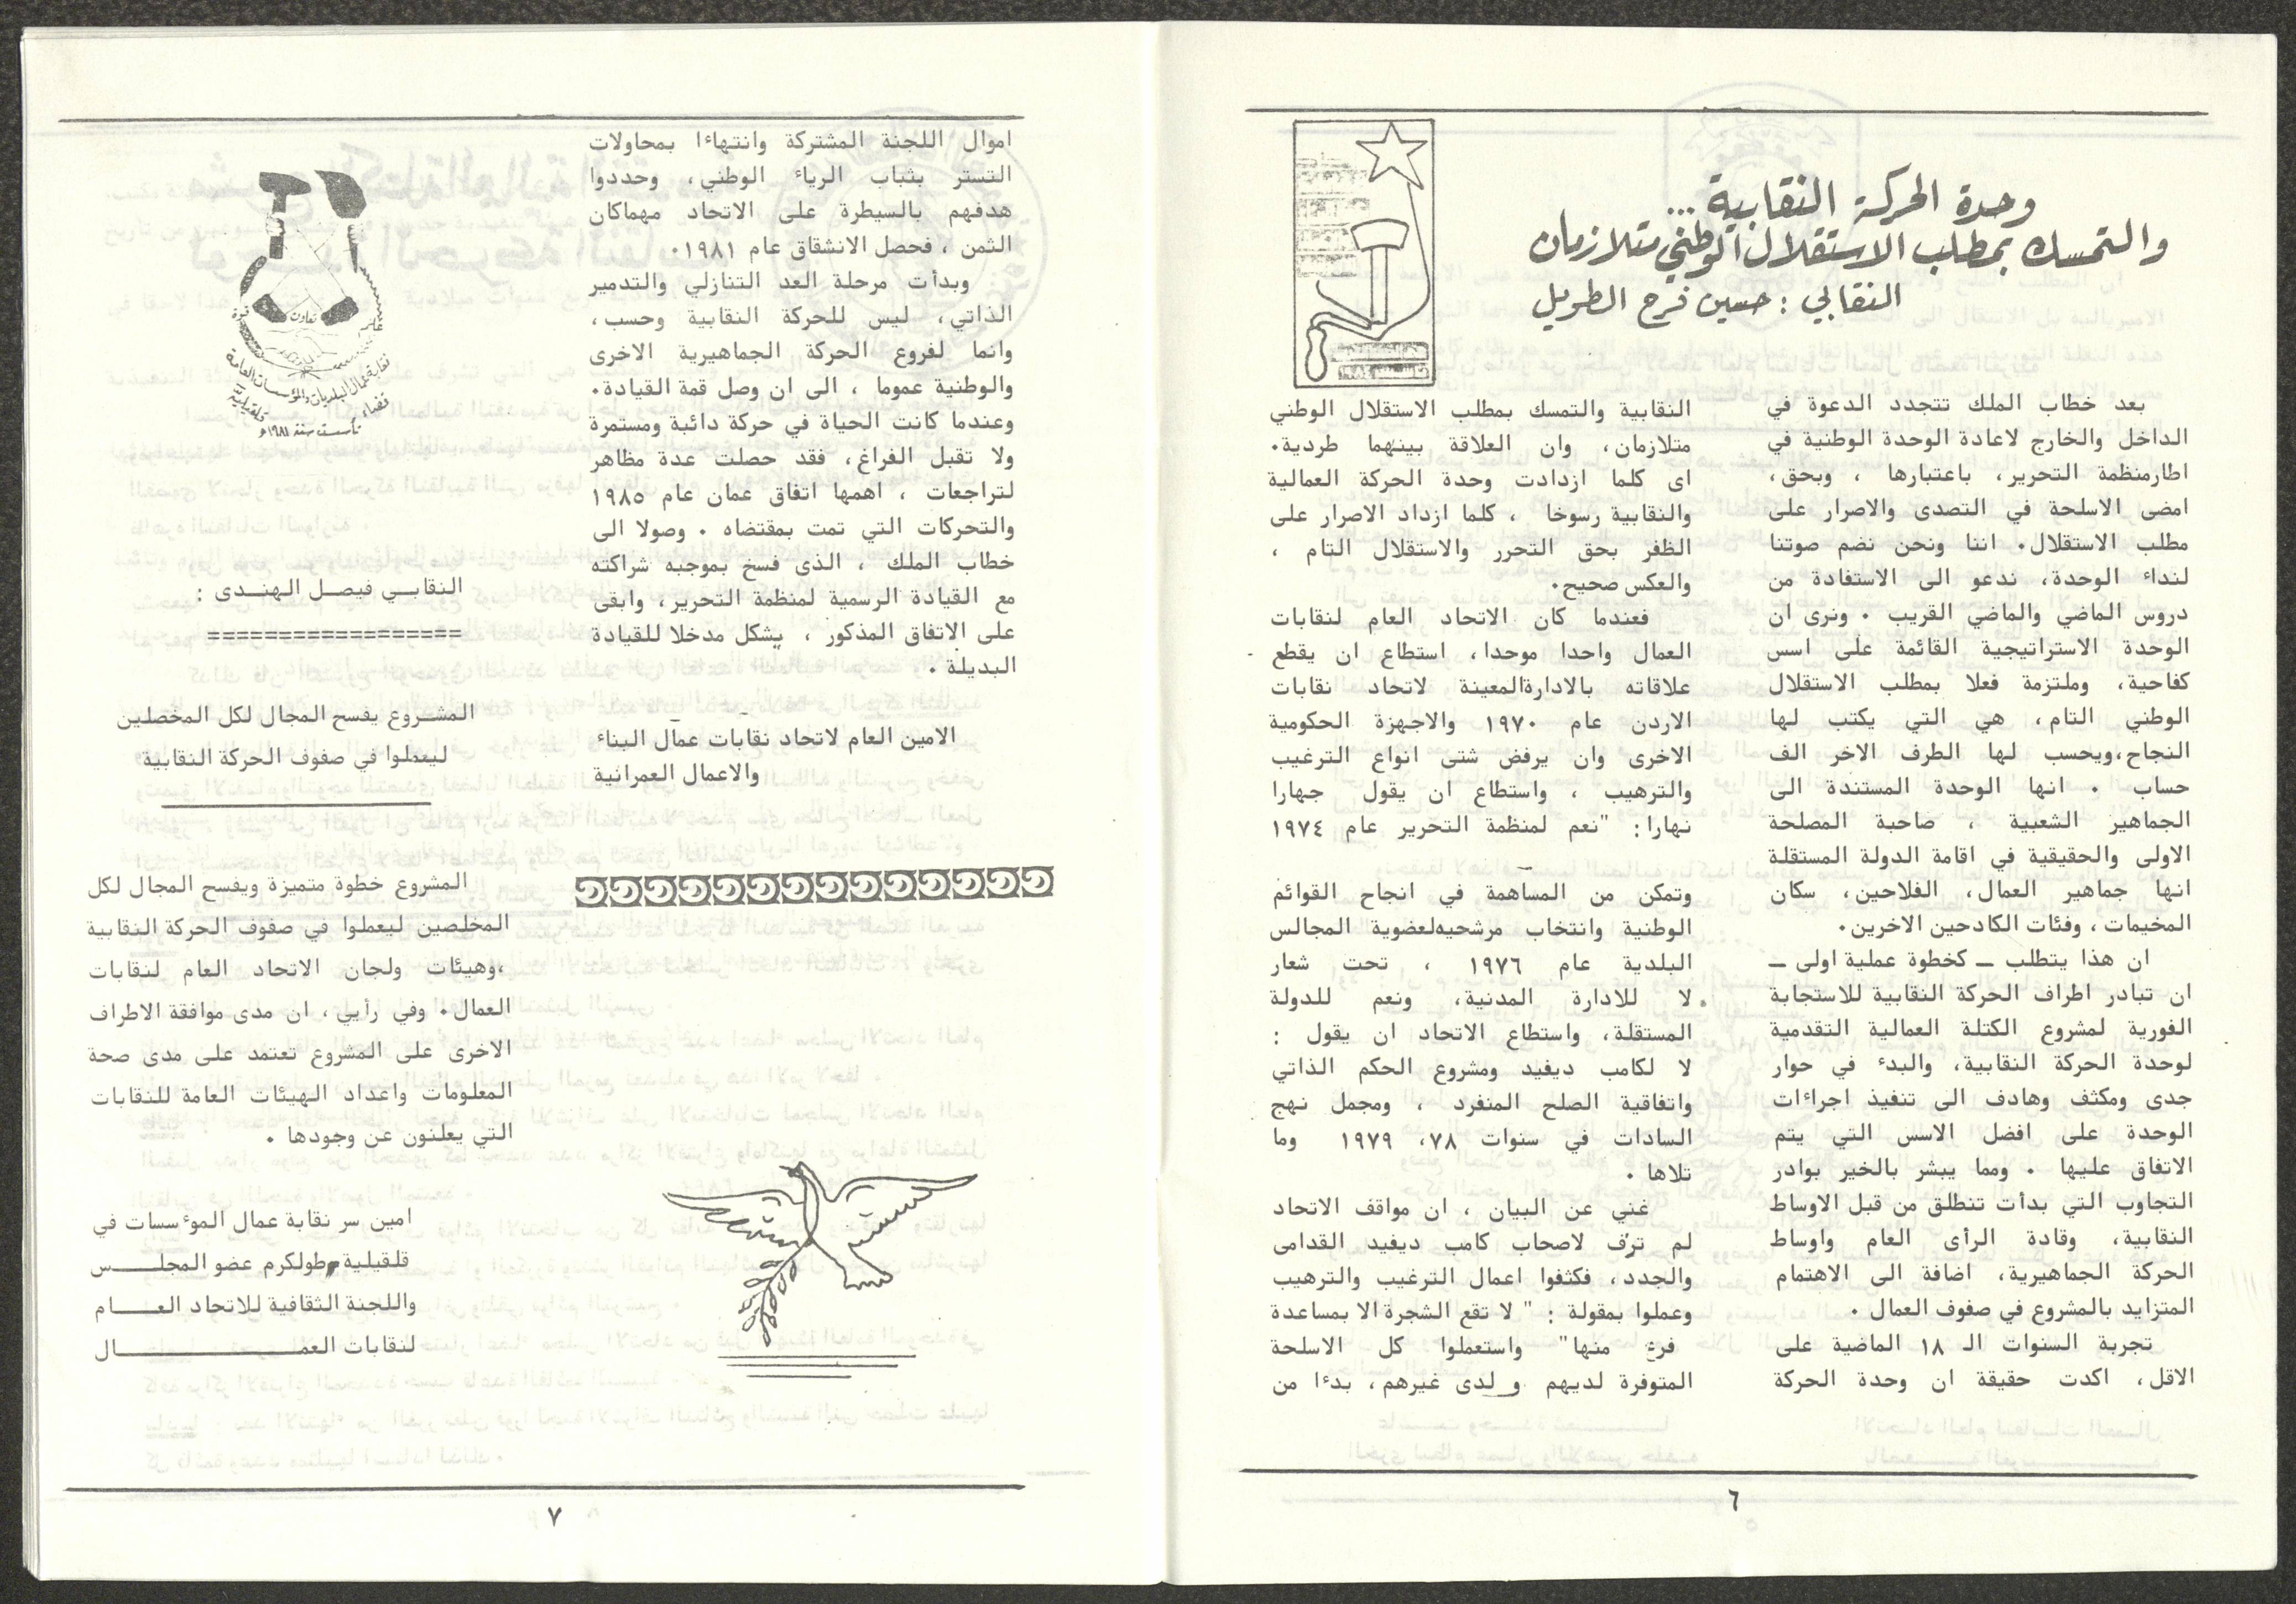 وحدة الحركة النقابية...
والتمسك بمطلب الاستقلال الوطني متلازمان
النقابي : حسين فرح الطويل
بعد خطاب الملك تتجدد الدعوة في
الداخل والخارج لاعادة الوحدة الوطنية في
اطارمنظمة التحرير، باعتبارها ، وبحق،
امضى الاسلحة في التصدى والاصرار على
مطلب الاستقلال. اننا ونحن نضم صوتنا
لنداء الوحدة، ندعو الى الاستفادة من
دروس الماضي والماضي القريب . ونرى ان
الوحدة الاستراتيجية القائمة على اسس
كفاحية، وملتزمة فعلا بمطلب الاستقلال
الوطني التام، هي التي يكتب لها
النجاح،ويحسب لها الطرف الاخر الف
حساب . انها الوحدة المستندة الى
الجماهير الشعبية ، صاحبة المصلحة
الاولى والحقيقية في اقامة الدولة المستقلة
انها جماهير العمال، الفلاحين، سكان
المخيمات، وفئات الكادحين الاخرين.
ان هذا يتطلب ــ كخطوة عملية اولى ــ
ان تبادر اطراف الحركة النقابية للاستجابة
الفورية لمشروع الكتلة العمالية التقدمية
لوحدة الحركة النقابية، والبدء في حوار
جدى ومكثف وهادف الى تنفيذ اجراءات
الوحدة على افضل الاسس التي يتم
الاتفاق عليها . ومما يبشر بالخير بوادر
التجاوب التي بدأت تنطلق من قبل الاوساط
النقابية، وقادة الرأى العام واوساط
الحركة الجماهيرية، اضافة الى الاهتمام
المتزايد بالمشروع في صفوف العمال .
تجربة السنوات الـ ١٨ الماضية على
الاقل، اكدت حقيقة ان وحدة الحركة
النقابية والتمسك بمطلب الاستقلال الوطني
متلازمان، وان العلاقة بينهما طردية.
اى كلما ازدادت وحدة الحركة العمالية
والنقابية رسوخا ، كلما ازداد الاصرار على
الظفر بحق التحرر والاستقلال التام ،
والعكس صحيح.
فعندما كان الاتحاد العام لنقابات
العمال واحدا موحدا، استطاع ان يقطع
علاقاته بالادارةالمعينة لاتحاد نقابات
الاردن عام ١٩٧٠ والاجهزة الحكومية
الاخرى وان يرفض شتى انواع الترغيب
والترهيب ، واستطاع ان يقول جهارا
نهارا: "نعم لمنظمة التحرير عام ١٩٧٤
وتمكن من المساهمة في انجاح القوائم
الوطنية وانتخاب مرشحيهلعضوية المجالس
البلدية عام ١٩٧٦ ، تحت شعار
لا للادارة المدنية، ونعم للدولة
المستقلة، واستطاع الاتحاد ان يقول :
لا لكامب ديفيد ومشروع الحكم الذاتي
واتفاقية الصلح المنفرد ، ومجمل نهج
السادات في سنوات ٧٨، ١٩٧٩ وما
تلاها .
غني عن البيان ، ان مواقف الاتحاد
لم ترق لاصحاب كامب ديفيد القدامى
والجدد، فكثفوا اعمال الترغيب والترهيب
وعملوا بمقولة : " لا تقع الشجرة الا بمساعدة
فرع منها" واستعملوا كل الاسلحة
المتوفرة لديهم و لدى غيرهم، بدءا من
٦
اموال اللجنة المشتركة وانتهاءا بمحاولات
التستر بثياب الرياء الوطني، وحددوا
هدفهم بالسيطرة على الاتحاد مهماكان
الثمن ، فحصل الانشقاق عام ١٩٨١.
وبدأت مرحلة العد التنازلي والتدمير
الذاتي، ليس للحركة النقابية وحسب،
وانما لفروع الحركة الجماهيرية الاخرى
والوطنية عموما ، الى ان وصل قمة القيادة.
وعندما كانت الحياة في حركة دائبة ومستمرة
ولا تقبل الفراغ، فقد حصلت عدة مظاهر
لتراجعات ، اهمها اتفاق عمان عام ١٩٨٥
والتحركات التي تمت بمقتضاه . وصولا الى
خطاب الملك ، الذى فسخ بموجبه شراكته
مع القيادة الرسمية لمنظمة التحرير، وابقى
على الاتفاق المذكور ، يشكل مدخلا للقيادة
البديلة .
الامين العام لاتحاد نقابات عمال البناء
والاعمال العمرانية
قوة
تعاون
نقابة عمال البلديات والمؤسسات العامة
قضاء قلقيلية
تأسست سنة ١٩٨١م
النقابــي فيصــل الهنــدى :
==================
المشــروع يفسح المجال لكل المخصلين
ليعملوا في صفوف الحركة النقابية
المشروع خطوة متميزة ويفسح المجال لكل
المخلصين ليعملوا في صفوف الحركة النقابية
،وهيئات ولجان الاتحاد العام لنقابات
العمال. وفي رأيي، ان مدى موافقة الاطراف
الاخرى على المشروع تعتمد على مدى صحة
المعلومات واعداد الهيئات العامة للنقابات
التي يعلنون عن وجودها .
امين سر نقابة عمال الموءسسات في
قلقيلية وطولكرم عضو المجلــــس
واللجنة الثقافية للاتحاد العــــام
لنقابات العمــــــــــــــــال
٧